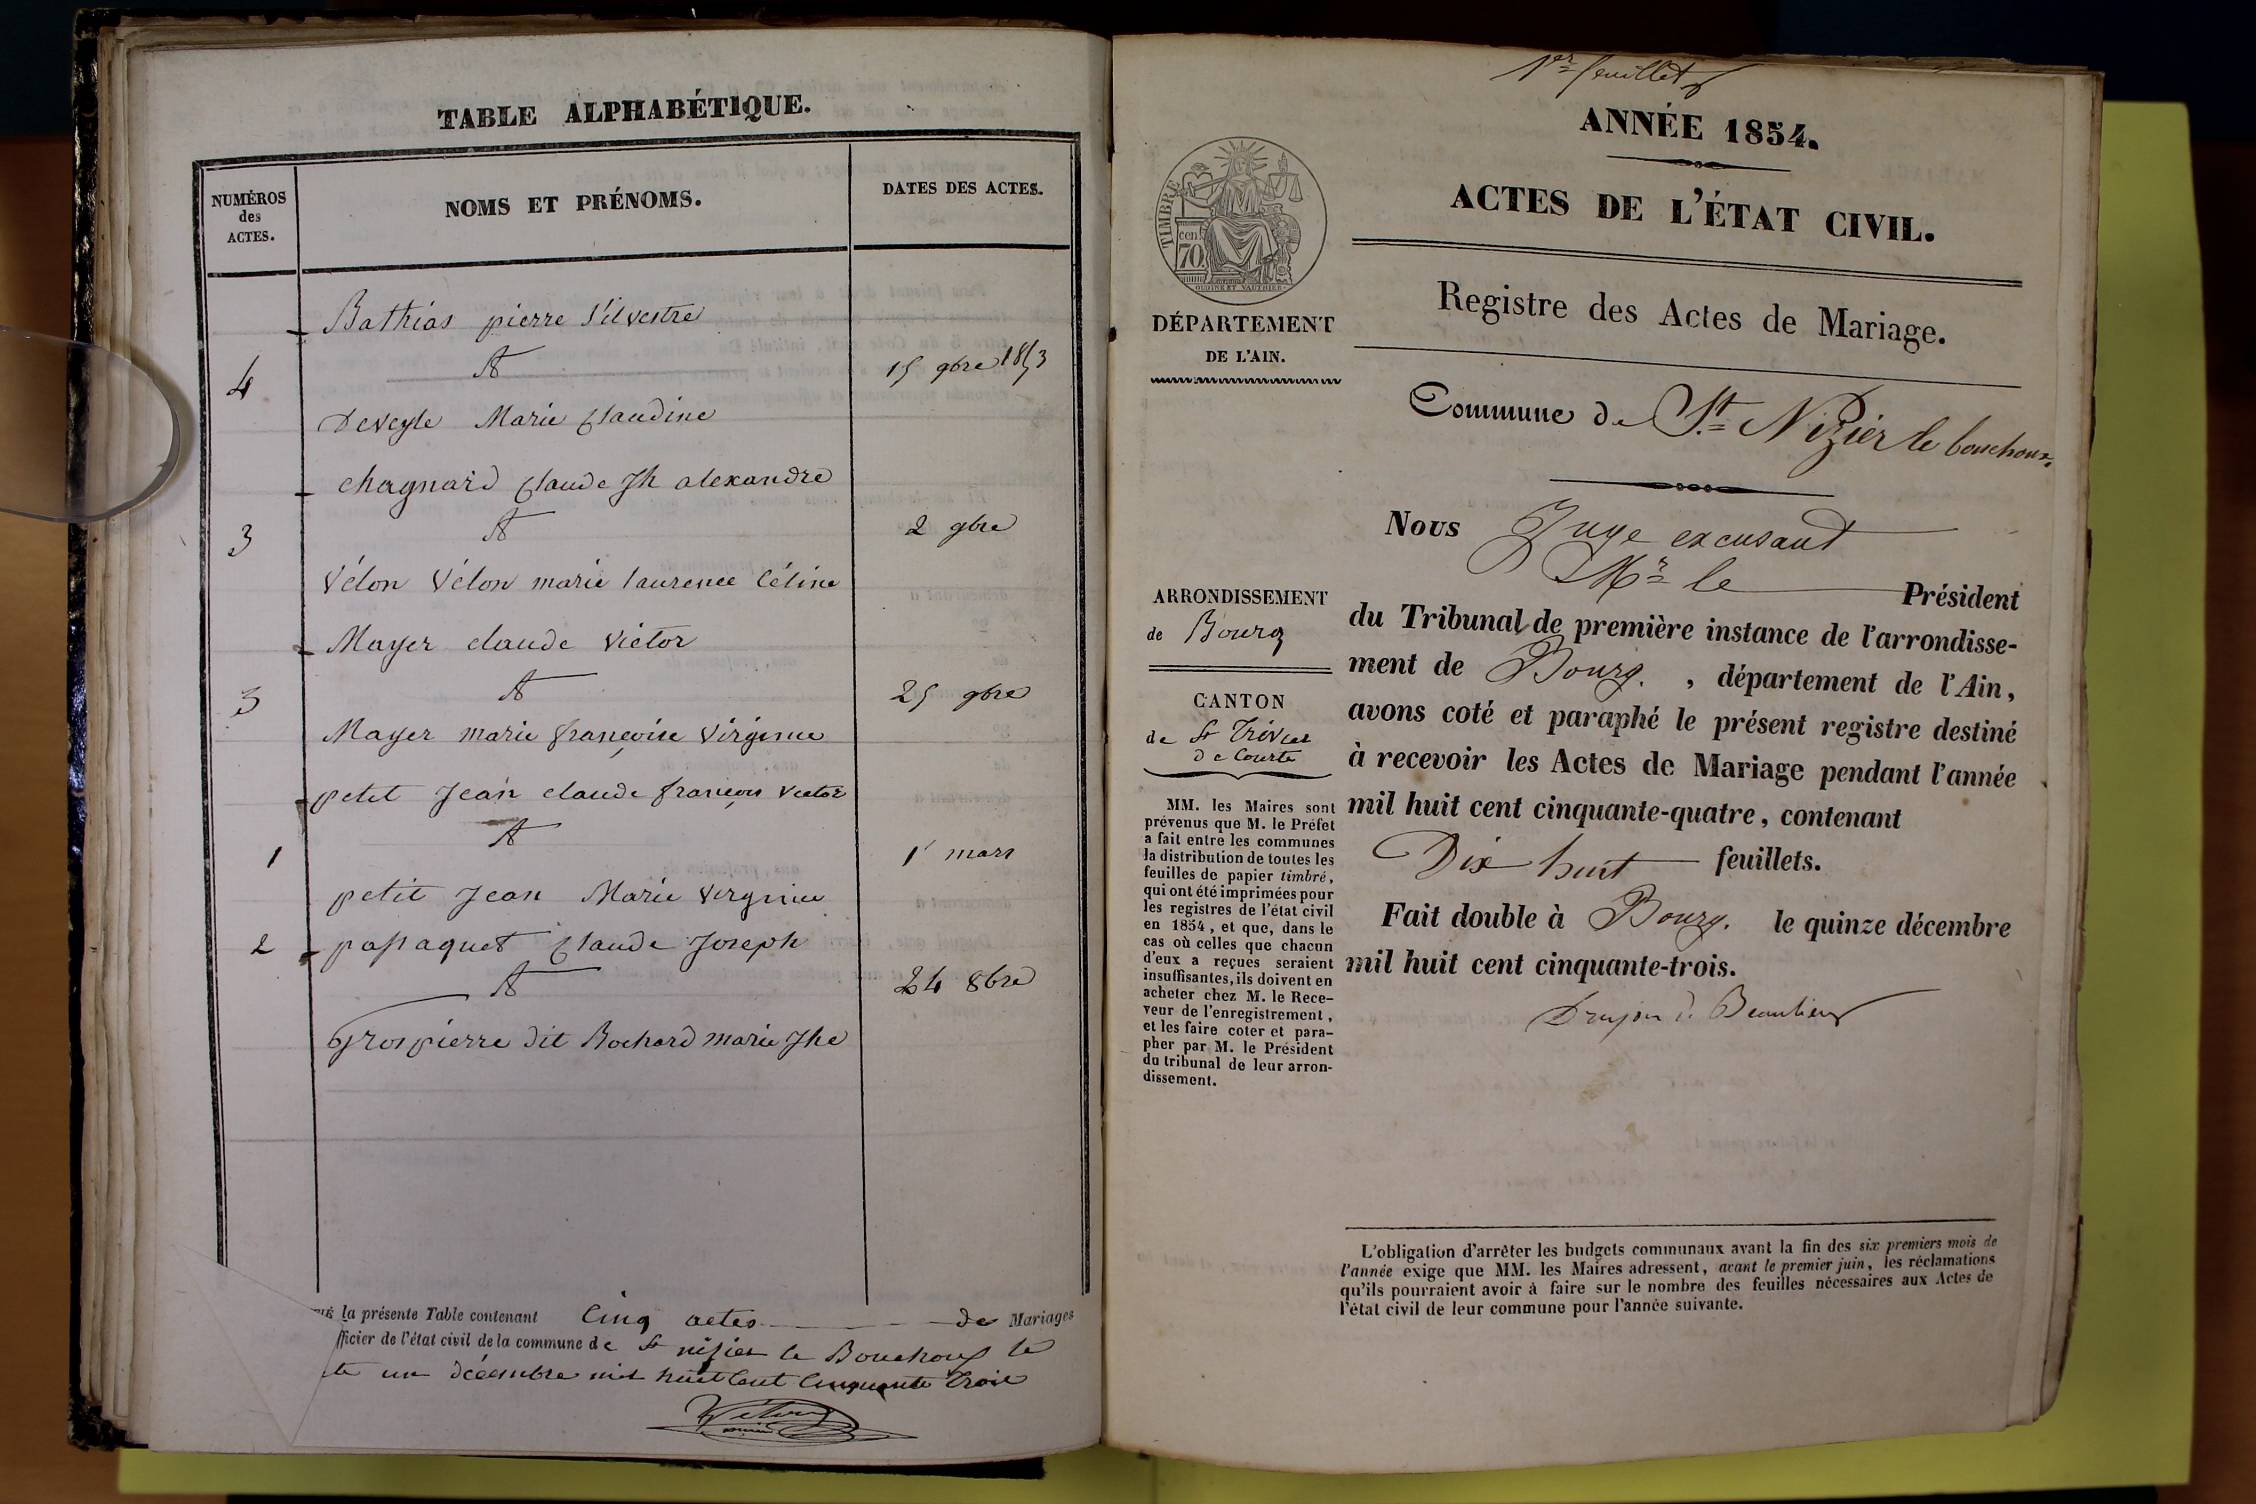 TABLE ALPHABÉTIQUE.
NUMÉROS des ACTES.
NOMS ET PRÉNOMS.
DATES DES ACTES.
Bathias pierre Silvestre
4 & 15 9bre 1853
Deveyle Marie Claudine
chagnard Claude Jh alexandre
3 & 2 9bre
Vélon Vélon marie laurence Céline
Mayer claude Victor
3 & 25 9bre
Mayer marie françoise Virginie
petit Jean claude françois Victor
1 & 1r mars
petit Jean Marie Virginie
2 passaquet Claude Joseph
& 24 8bre
Grospierre dit Bochard marie Jhe
la présente Table contenant Cinq actes de Mariages
fficier de l'état civil de la commune de St nisier le Bouchoux le
te un décembre mil huit Cent Cinquante trois
Vélon
maire
1er feuillet
ANNÉE 1854.
ACTES DE L'ÉTAT CIVIL.
TIMBRE
cen. 70.
DÉPARTEMENT
DE L'AIN.
Registre des Actes de Mariage.
Commune de St. Nizier le bouchoux.
Nous Juge excusant
Mr. le Président
du Tribunal de première instance de l'arrondisse-
ment de Bourg. , département de l'Ain,
avons coté et paraphé le présent registre destiné
à recevoir les Actes de Mariage pendant l'année
mil huit cent cinquante-quatre, contenant
Dix huit feuillets.
Fait double à Bourg. le quinze décembre
mil huit cent cinquante-trois.
Drujon de Beaulieu
ARRONDISSEMENT
de Bourg
CANTON
de St Trivier
de Courte
MM. les Maires sont
prévenus que M. le Préfet
a fait entre les communes
la distribution de toutes les
feuilles de papier timbré,
qui ont été imprimées pour
les registres de l'état civil
en 1854, et que, dans le
cas où celles que chacun
d'eux a reçues seraient
insuffisantes, ils doivent en
acheter chez M. le Rece-
veur de l'enregistrement,
et les faire coter et para-
pher par M. le Président
du tribunal de leur arron-
dissement.
L'obligation d'arrêter les budgets communaux avant la fin des six premiers mois de
l'année exige que MM. les Maires adressent, avant le premier juin, les réclamations
qu'ils pourraient avoir à faire sur le nombre des feuilles nécessaires aux Actes de
l'état civil de leur commune pour l'année suivante.